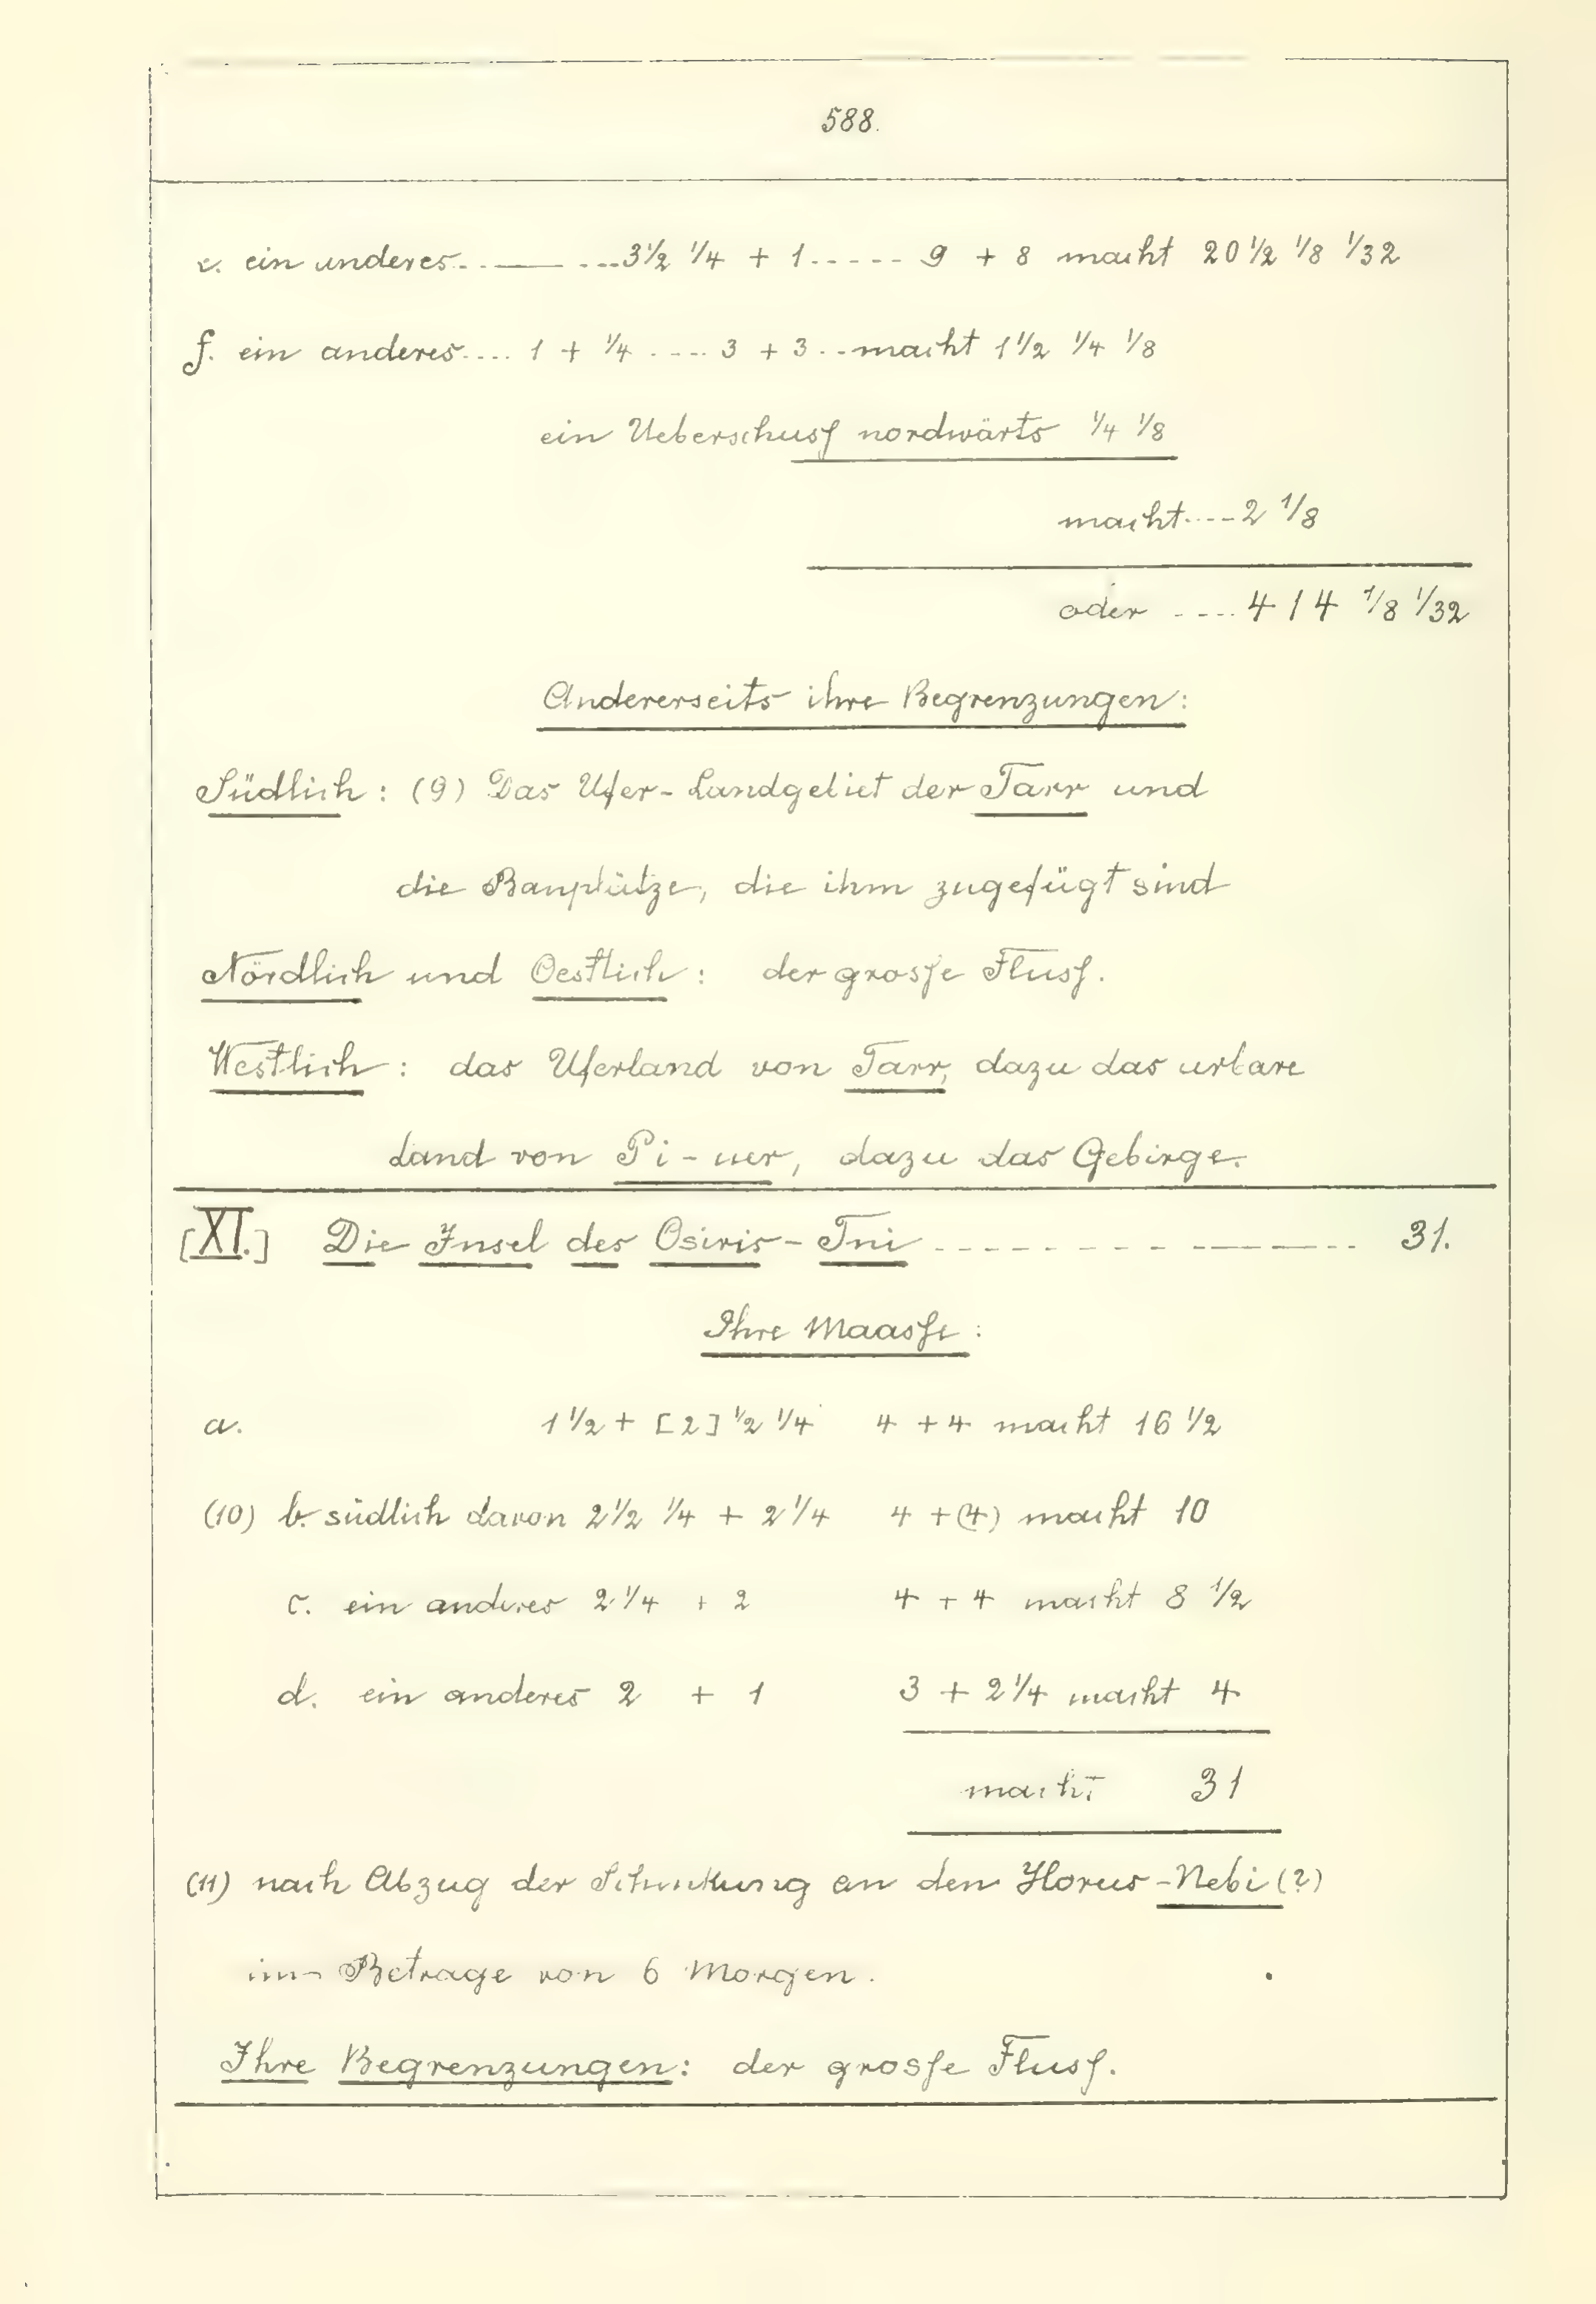 588.
e. ein anderes.....3½ ¼ + 1..... 9 + 8 macht 20 ½ ⅛ 1/32
f. ein anderes.... 1 + ¼ ..... 3 + 3 ..macht 1½ ¼ ⅛
ein Ueberschuss nordwärts ¼ ⅛
macht....2 ⅛
oder ....414 ⅛ 1/32
Andererseits ihre Begrenzungen:
Südlich: (9) Das Ufer-Landgebiet der Tarr und
die Bauplätze, die ihm zugefügt sind
Nördlich und Oestlich: der grosse Fluss.
Westlich: das Uferland von Tarr, dazu das urbare
Land von Pi-uer, dazu das Gebirge.
[XI.] Die Insel des Osiris-Tni .......... 31.
Ihre Maasse:
a. 1 ½ + [2] ½ ¼ 4 + 4 macht 16 ½
(10) b. südlich davon 2½ ¼ + 2 ¼ 4 + (4) macht 10
c. ein anderes 2 ¼ + 2 4 + 4 macht 8 ½
d. ein anderes 2 + 1 3 + 2 ¼ macht 4
macht 31
(11) nach Abzug der Schenkung an den Horus-Nebi (?)
im Betrage von 6 Morgen.
Ihre Begrenzungen: der grosse Fluss.